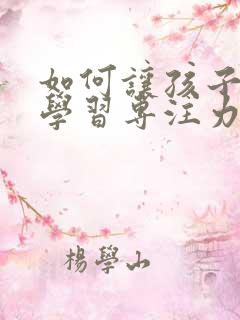 如何讓孩子
學習專注力
楊學山